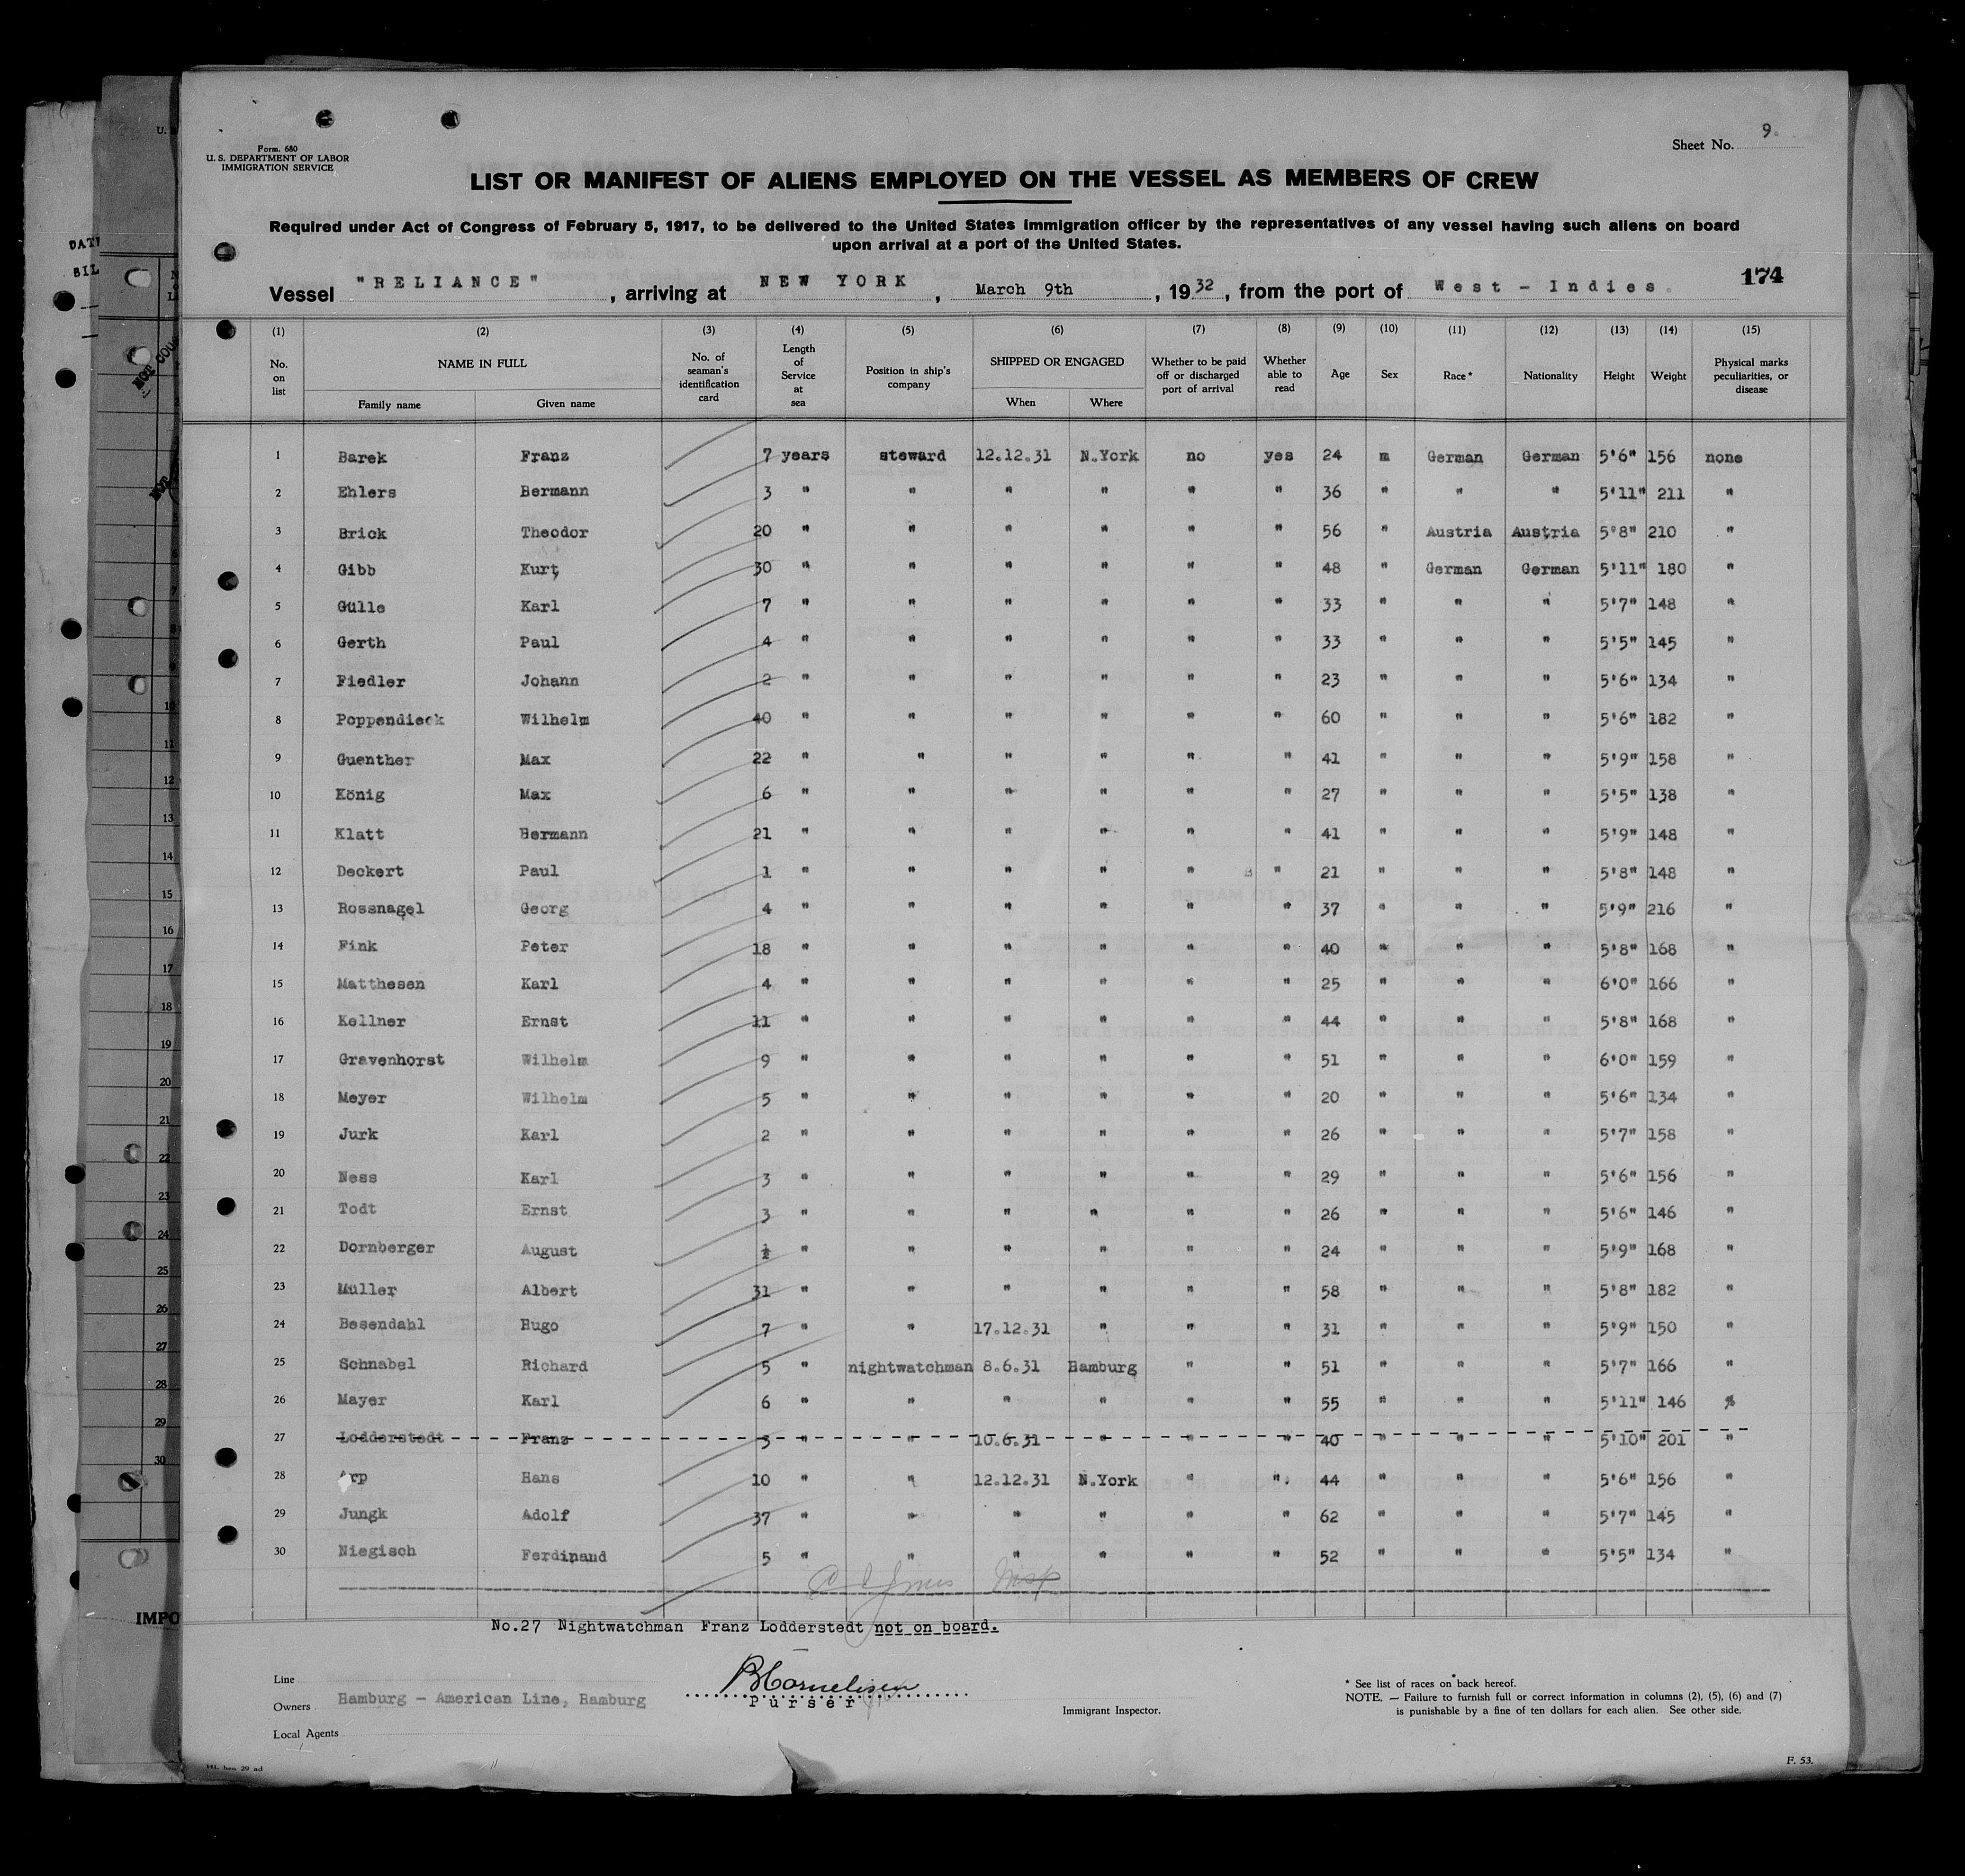 Form. 680
U. S. DEPARTMENT OF LABOR
IMMIGRATION SERVICE
Sheet No. 9.
LIST OR MANIFEST OF ALIENS EMPLOYED ON THE VESSEL AS MEMBERS OF CREW
Required under Act of Congress of February 5, 1917, to be delivered to the United States immigration officer by the representatives of any vessel having such aliens on board
upon arrival at a port of the United States.
Vessel "RELIANCE", arriving at NEW YORK, March 9th, 1932, from the port of West-Indies. 174
(1) (2) (3) (4) (5) (6) (7) (8) (9) (10) (11) (12) (13) (14) (15)
No. on list NAME IN FULL Family name Given name No. of seaman's identification card Length of Service at sea Position in ship's company SHIPPED OR ENGAGED When Where Whether to be paid off or discharged port of arrival Whether able to read Age Sex Race* Nationality Height Weight Physical marks peculiarities, or disease
1 Barek Franz 7 years steward 12.12.31 N.York no yes 24 m German German 5'6" 156 none
2 Ehlers Hermann 3 " " " " " " 36 " " " 5'11" 211 "
3 Brick Theodor 20 " " " " " " 56 " Austria Austria 5'8" 210 "
4 Gibb Kurt 30 " " " " " " 48 " German German 5'11" 180 "
5 Gülle Karl 7 " " " " " " 33 " " " 5'7" 148 "
6 Gerth Paul 4 " " " " " " 33 " " " 5'5" 145 "
7 Fiedler Johann 2 " " " " " " 23 " " " 5'6" 134 "
8 Poppendieck Wilhelm 40 " " " " " " 60 " " " 5'6" 182 "
9 Guenther Max 22 " " " " " " 41 " " " 5'9" 158 "
10 König Max 6 " " " " " " 27 " " " 5'5" 138 "
11 Klatt Hermann 21 " " " " " " 41 " " " 5'9" 148 "
12 Deckert Paul 1 " " " " " " 21 " " " 5'8" 148 "
13 Rossnagel Georg 4 " " " " " " 37 " " " 5'9" 216 "
14 Fink Peter 18 " " " " " " 40 " " " 5'8" 168 "
15 Matthesen Karl 4 " " " " " " 25 " " " 6'0" 166 "
16 Kellner Ernst 11 " " " " " " 44 " " " 5'8" 168 "
17 Gravenhorst Wilhelm 9 " " " " " " 51 " " " 6'0" 159 "
18 Meyer Wilhelm 5 " " " " " " 20 " " " 5'6" 134 "
19 Jurk Karl 2 " " " " " " 26 " " " 5'7" 158 "
20 Ness Karl 3 " " " " " " 29 " " " 5'6" 156 "
21 Todt Ernst 3 " " " " " " 26 " " " 5'6" 146 "
22 Dornberger August ½ " " " " " " 24 " " " 5'9" 168 "
23 Müller Albert 31 " " " " " " 58 " " " 5'8" 182 "
24 Besendahl Hugo 7 " " 17.12.31 " " " 31 " " " 5'9" 150 "
25 Schnabel Richard 5 " nightwatchman 8.6.31 Hamburg " " 51 " " " 5'7" 166 "
26 Mayer Karl 6 " " " " " " 55 " " " 5'11" 146 "
27 Lodderstedt Franz 3 " " 10.6.31 " " " 40 " " " 5'10" 201 "
28 Arp Hans 10 " " 12.12.31 N.York " " 44 " " " 5'6" 156 "
29 Jungk Adolf 37 " " " " " " 62 " " " 5'7" 145 "
30 Niegisch Ferdinand 5 " " " " " " 52 " " " 5'5" 134 "
No.27 Nightwatchman Franz Lodderstedt not on board.
Line
Owners Hamburg - American Line, Hamburg
Local Agents
BCornelisen
Purser
Immigrant Inspector.
* See list of races on back hereof.
NOTE. — Failure to furnish full or correct information in columns (2), (5), (6) and (7)
is punishable by a fine of ten dollars for each alien. See other side.
F. 53.